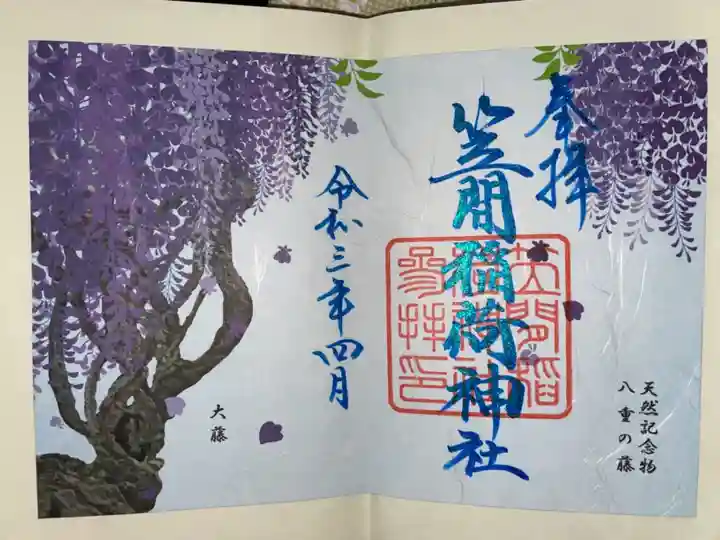 奉拝
笠間稲荷神社
笠間稲
荷神社
参拝印
令和三年四月
天然記念物
八重の藤
大藤